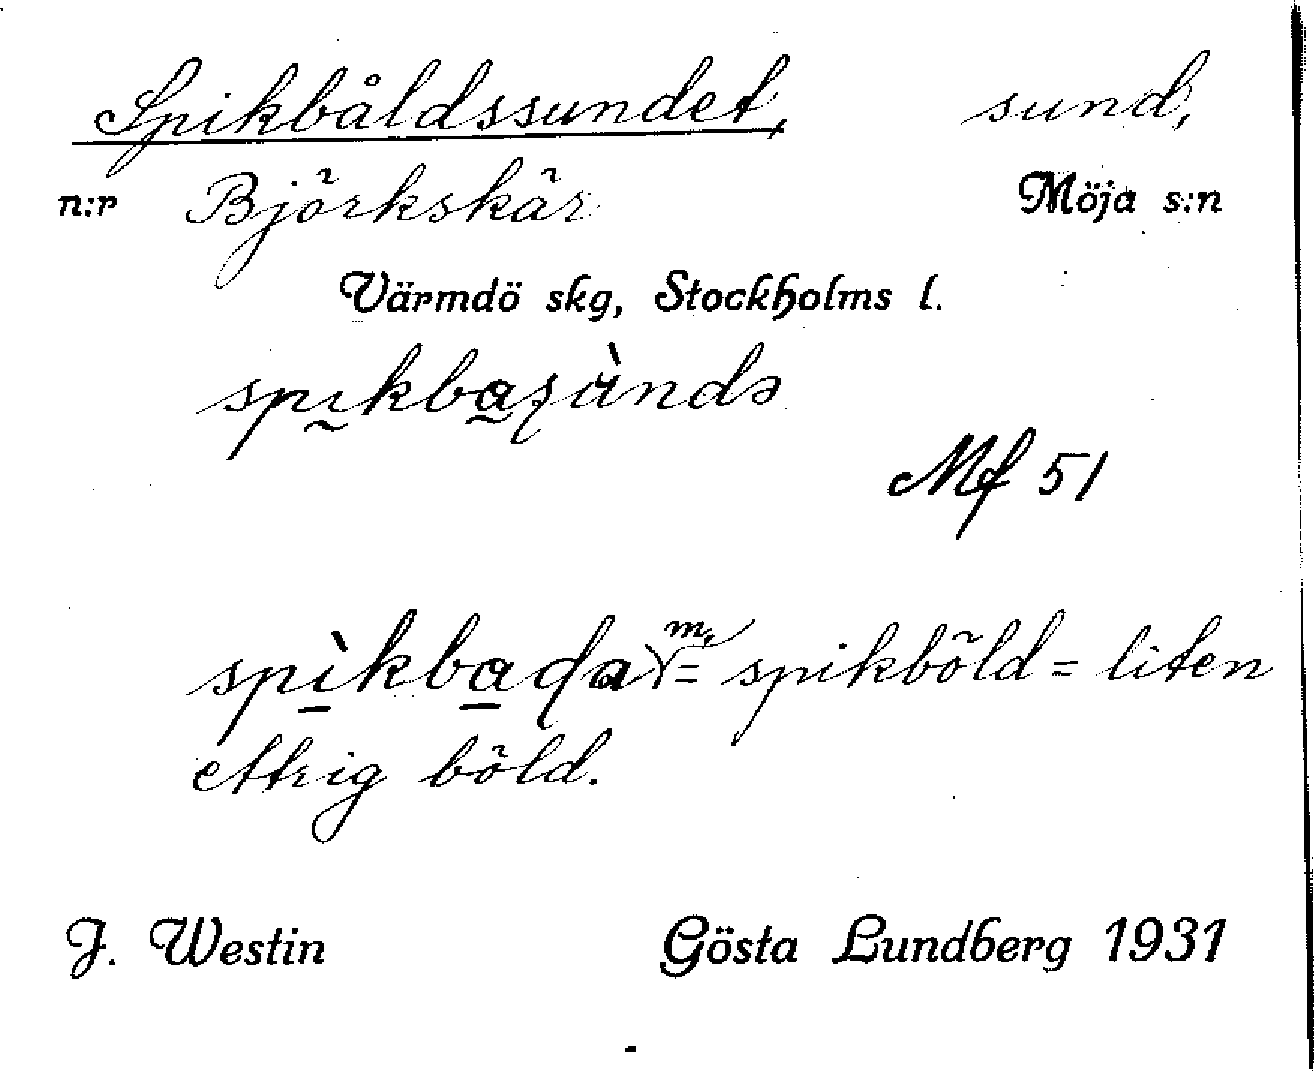 Spikbåldssundet, sund,
n:r Björkskär Möja s:n
Värmdö skg, Stockholms l.
Mf 51
m. = spikböld = liten
ettrig böld.
J. Westin Gösta Lundberg 1931